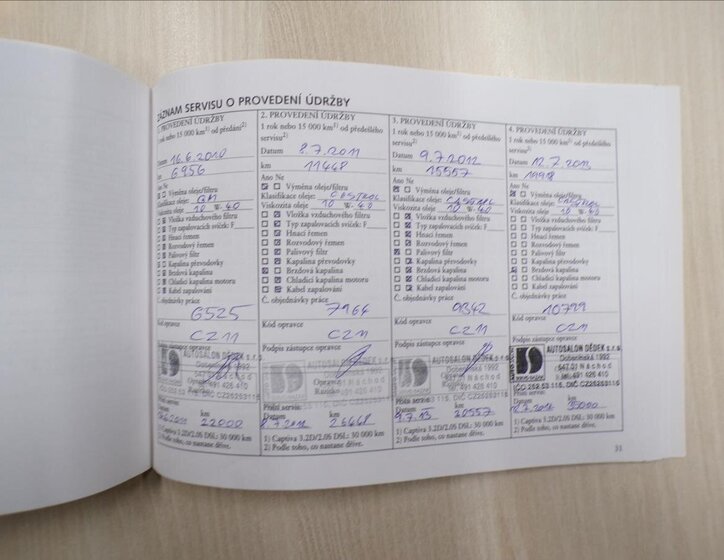 ZÁZNAM SERVISU O PROVEDENÍ ÚDRŽBY
1. PROVEDENÍ ÚDRŽBY
1 rok nebo 15 000 km1) od předání2)
Datum 16.6.2010
km 6956
Ano Ne
Výměna oleje/filtru
Klasifikace oleje: GM
Viskozita oleje: 10 W-40
Vložka vzduchového filtru
Typ zapalovacích svíček: F
Hnací řemen
Rozvodový řemen
Palivový filtr
Kapalina převodovky
Brzdová kapalina
Chladící kapalina motoru
Kabel zapalování
Č. objednávky práce
6525
Kód opravce
CZ11
Podpis zástupce opravce
AUTOSALON DĚDEK s.r.o.
Příští servis:
Datum km
22000
1) Captiva 3.2D/2.0S DSL: 30 000 km
2) Podle toho, co nastane dříve.
2. PROVEDENÍ ÚDRŽBY
1 rok nebo 15 000 km1) od předešlého
servisu2)
Datum 8.7.2011
km 11448
Ano Ne
Výměna oleje/filtru
Klasifikace oleje: CASTROL
Viskozita oleje: 10 W-40
Vložka vzduchového filtru
Typ zapalovacích svíček: F
Hnací řemen
Rozvodový řemen
Palivový filtr
Kapalina převodovky
Brzdová kapalina
Chladící kapalina motoru
Kabel zapalování
Č. objednávky práce
7964
Kód opravce
CZ11
Podpis zástupce opravce
AUTOSALON DĚDEK s.r.o.
Příští servis:
Datum km
8.7.2012 26448
1) Captiva 3.2D/2.0S DSL: 30 000 km
2) Podle toho, co nastane dříve.
3. PROVEDENÍ ÚDRŽBY
1 rok nebo 15 000 km1) od předešlého
servisu2)
Datum 9.7.2012
km 15557
Ano Ne
Výměna oleje/filtru
Klasifikace oleje: CASTROL
Viskozita oleje: 10 W-40
Vložka vzduchového filtru
Typ zapalovacích svíček: F
Hnací řemen
Rozvodový řemen
Palivový filtr
Kapalina převodovky
Brzdová kapalina
Chladící kapalina motoru
Kabel zapalování
Č. objednávky práce
9342
Kód opravce
CZ11
Podpis zástupce opravce
AUTOSALON DĚDEK s.r.o.
Příští servis:
Datum km
9.7.13 30557
1) Captiva 3.2D/2.0S DSL: 30 000 km
2) Podle toho, co nastane dříve.
4. PROVEDENÍ ÚDRŽBY
1 rok nebo 15 000 km1) od předešlého
servisu2)
Datum 12.7.2013
km 19918
Ano Ne
Výměna oleje/filtru
Klasifikace oleje: CASTROL
Viskozita oleje: 10 W-40
Vložka vzduchového filtru
Typ zapalovacích svíček: F
Hnací řemen
Rozvodový řemen
Palivový filtr
Kapalina převodovky
Brzdová kapalina
Chladící kapalina motoru
Kabel zapalování
Č. objednávky práce
10799
Kód opravce
CZ11
Podpis zástupce opravce
AUTOSALON DĚDEK s.r.o.
Dobenínská 1992
547 01 Náchod
tel. 491 426 410
Datum km
35000
1) Captiva 3.2D/2.0S DSL: 30 000 km
2) Podle toho, co nastane dříve.
31